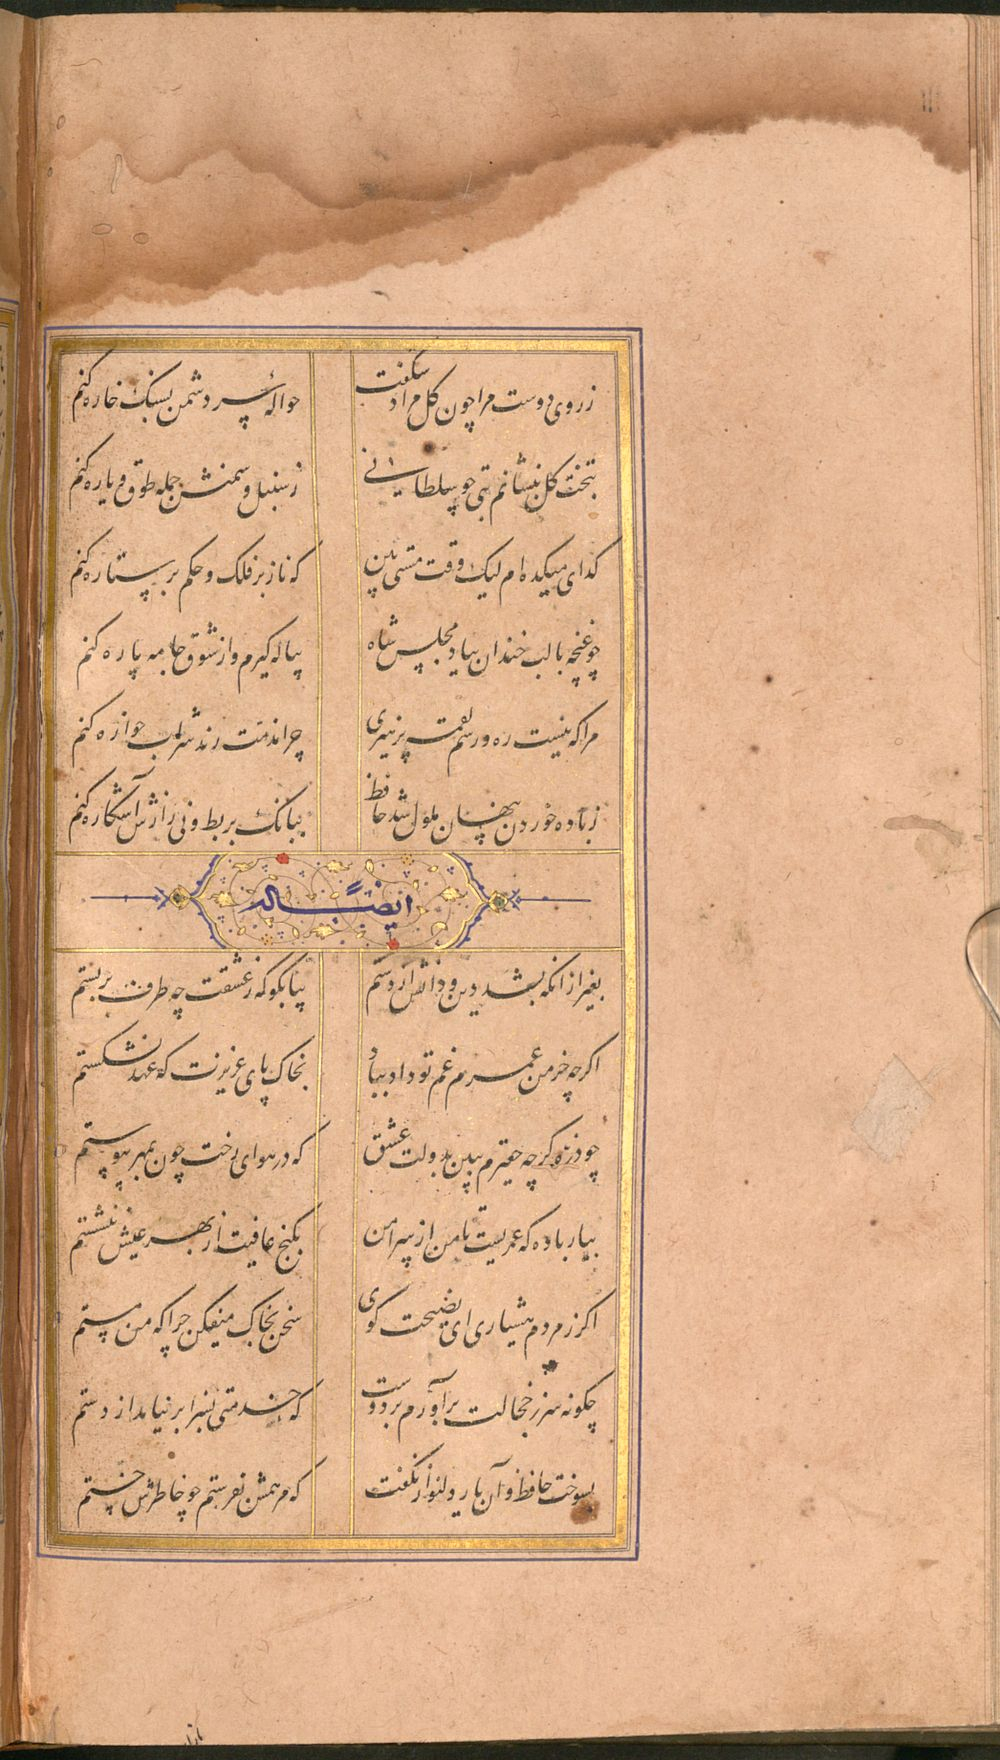 ز روی دوست مرا چون کل مراد شکفت حواله سر دشمن بسنک خاره کنم
بتخت کل بنشانم بتی چو سلطانی ز سنبل و سمنش جمله طوق و یاره کنم
کدای میکده ام لیک وقت مستی بین که ناز بر فلک و حکم بر ستاره کنم
چو غنچه با لب خندان بیاد مجلس شاه پیاله کیرم و از شوق جامه پاره کنم
مرا که نیست ره و رسم لقمه پرهیزی چرا مذمت رند شراب خواره کنم
ز باده خوردن پنهان ملول شد حافظ ببانک بربط و نی رازش آشکاره کنم
ایضاً له
بغیر از آنکه بشد دین و دانش از دستم بیا بکو که ز عشقت چه طرف بربستم
اکرچه خرمن عمرم غم تو داد بباد بخاک پای عزیزت که عهد نشکستم
چو ذره کرچه حقیرم ببین بدولت عشق که در هوای رخت چون بمهر پیوستم
بیار باده که عمریست تا من از سر امن بکنج عافیت از بهر عیش ننشستم
اکر ز مردم هشیاری ای نصیحت کوی سخن بخاک میفکن چرا که من مستم
چکونه سر ز خجالت برآورم بر دوست که خدمتی بسزا برنیامد از دستم
بسوخت حافظ و آن یار دلنواز نکفت که مرهمش بفرستم چو خاطرش خستم